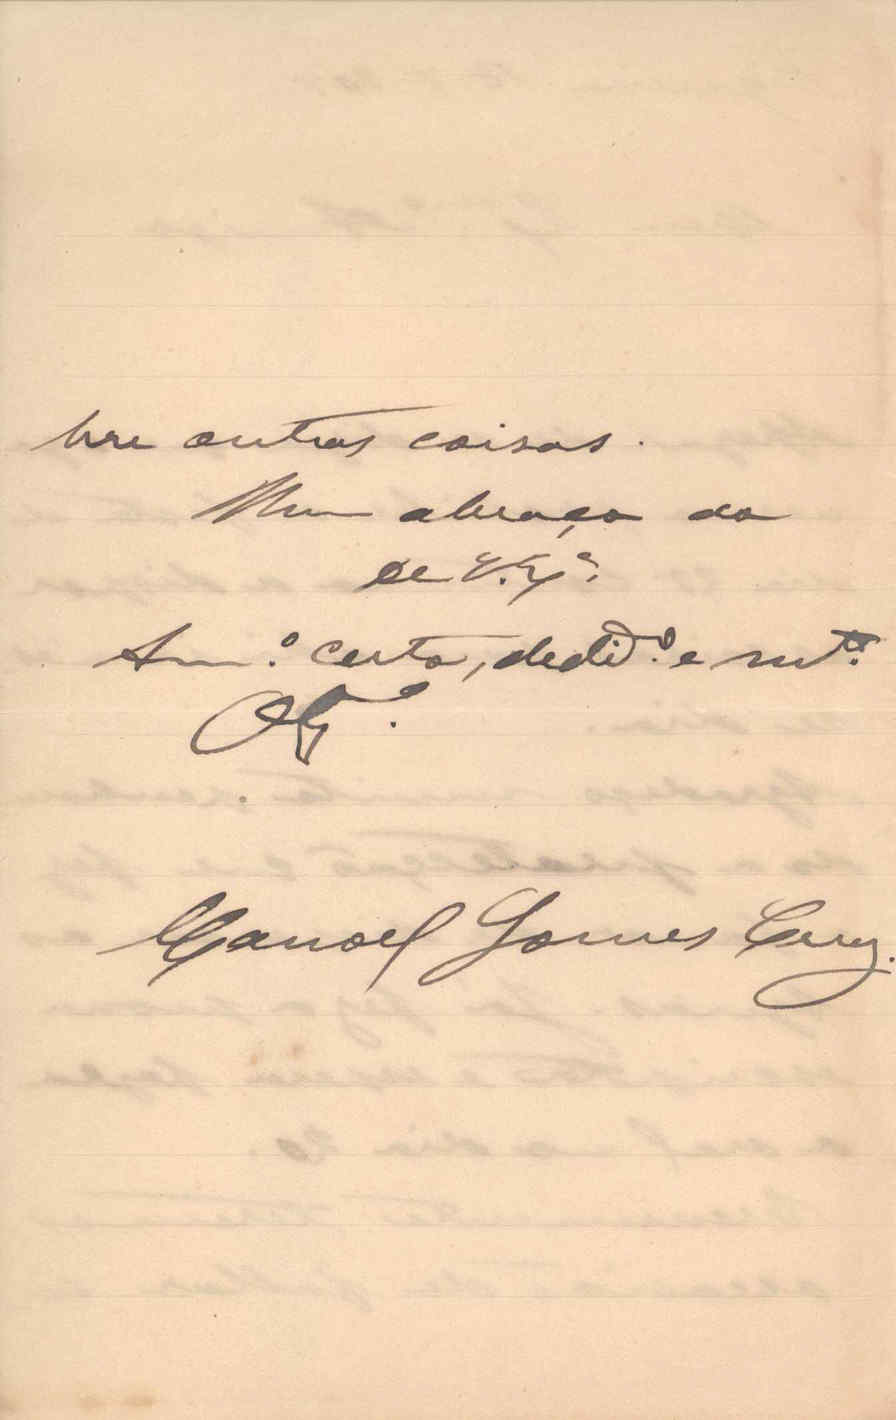 bre outras coisas.
Um abraço do
de V. Exª.
Am.º certo, dedic.º e mt.º
Obg.º
Manoel Gomes Cruz.